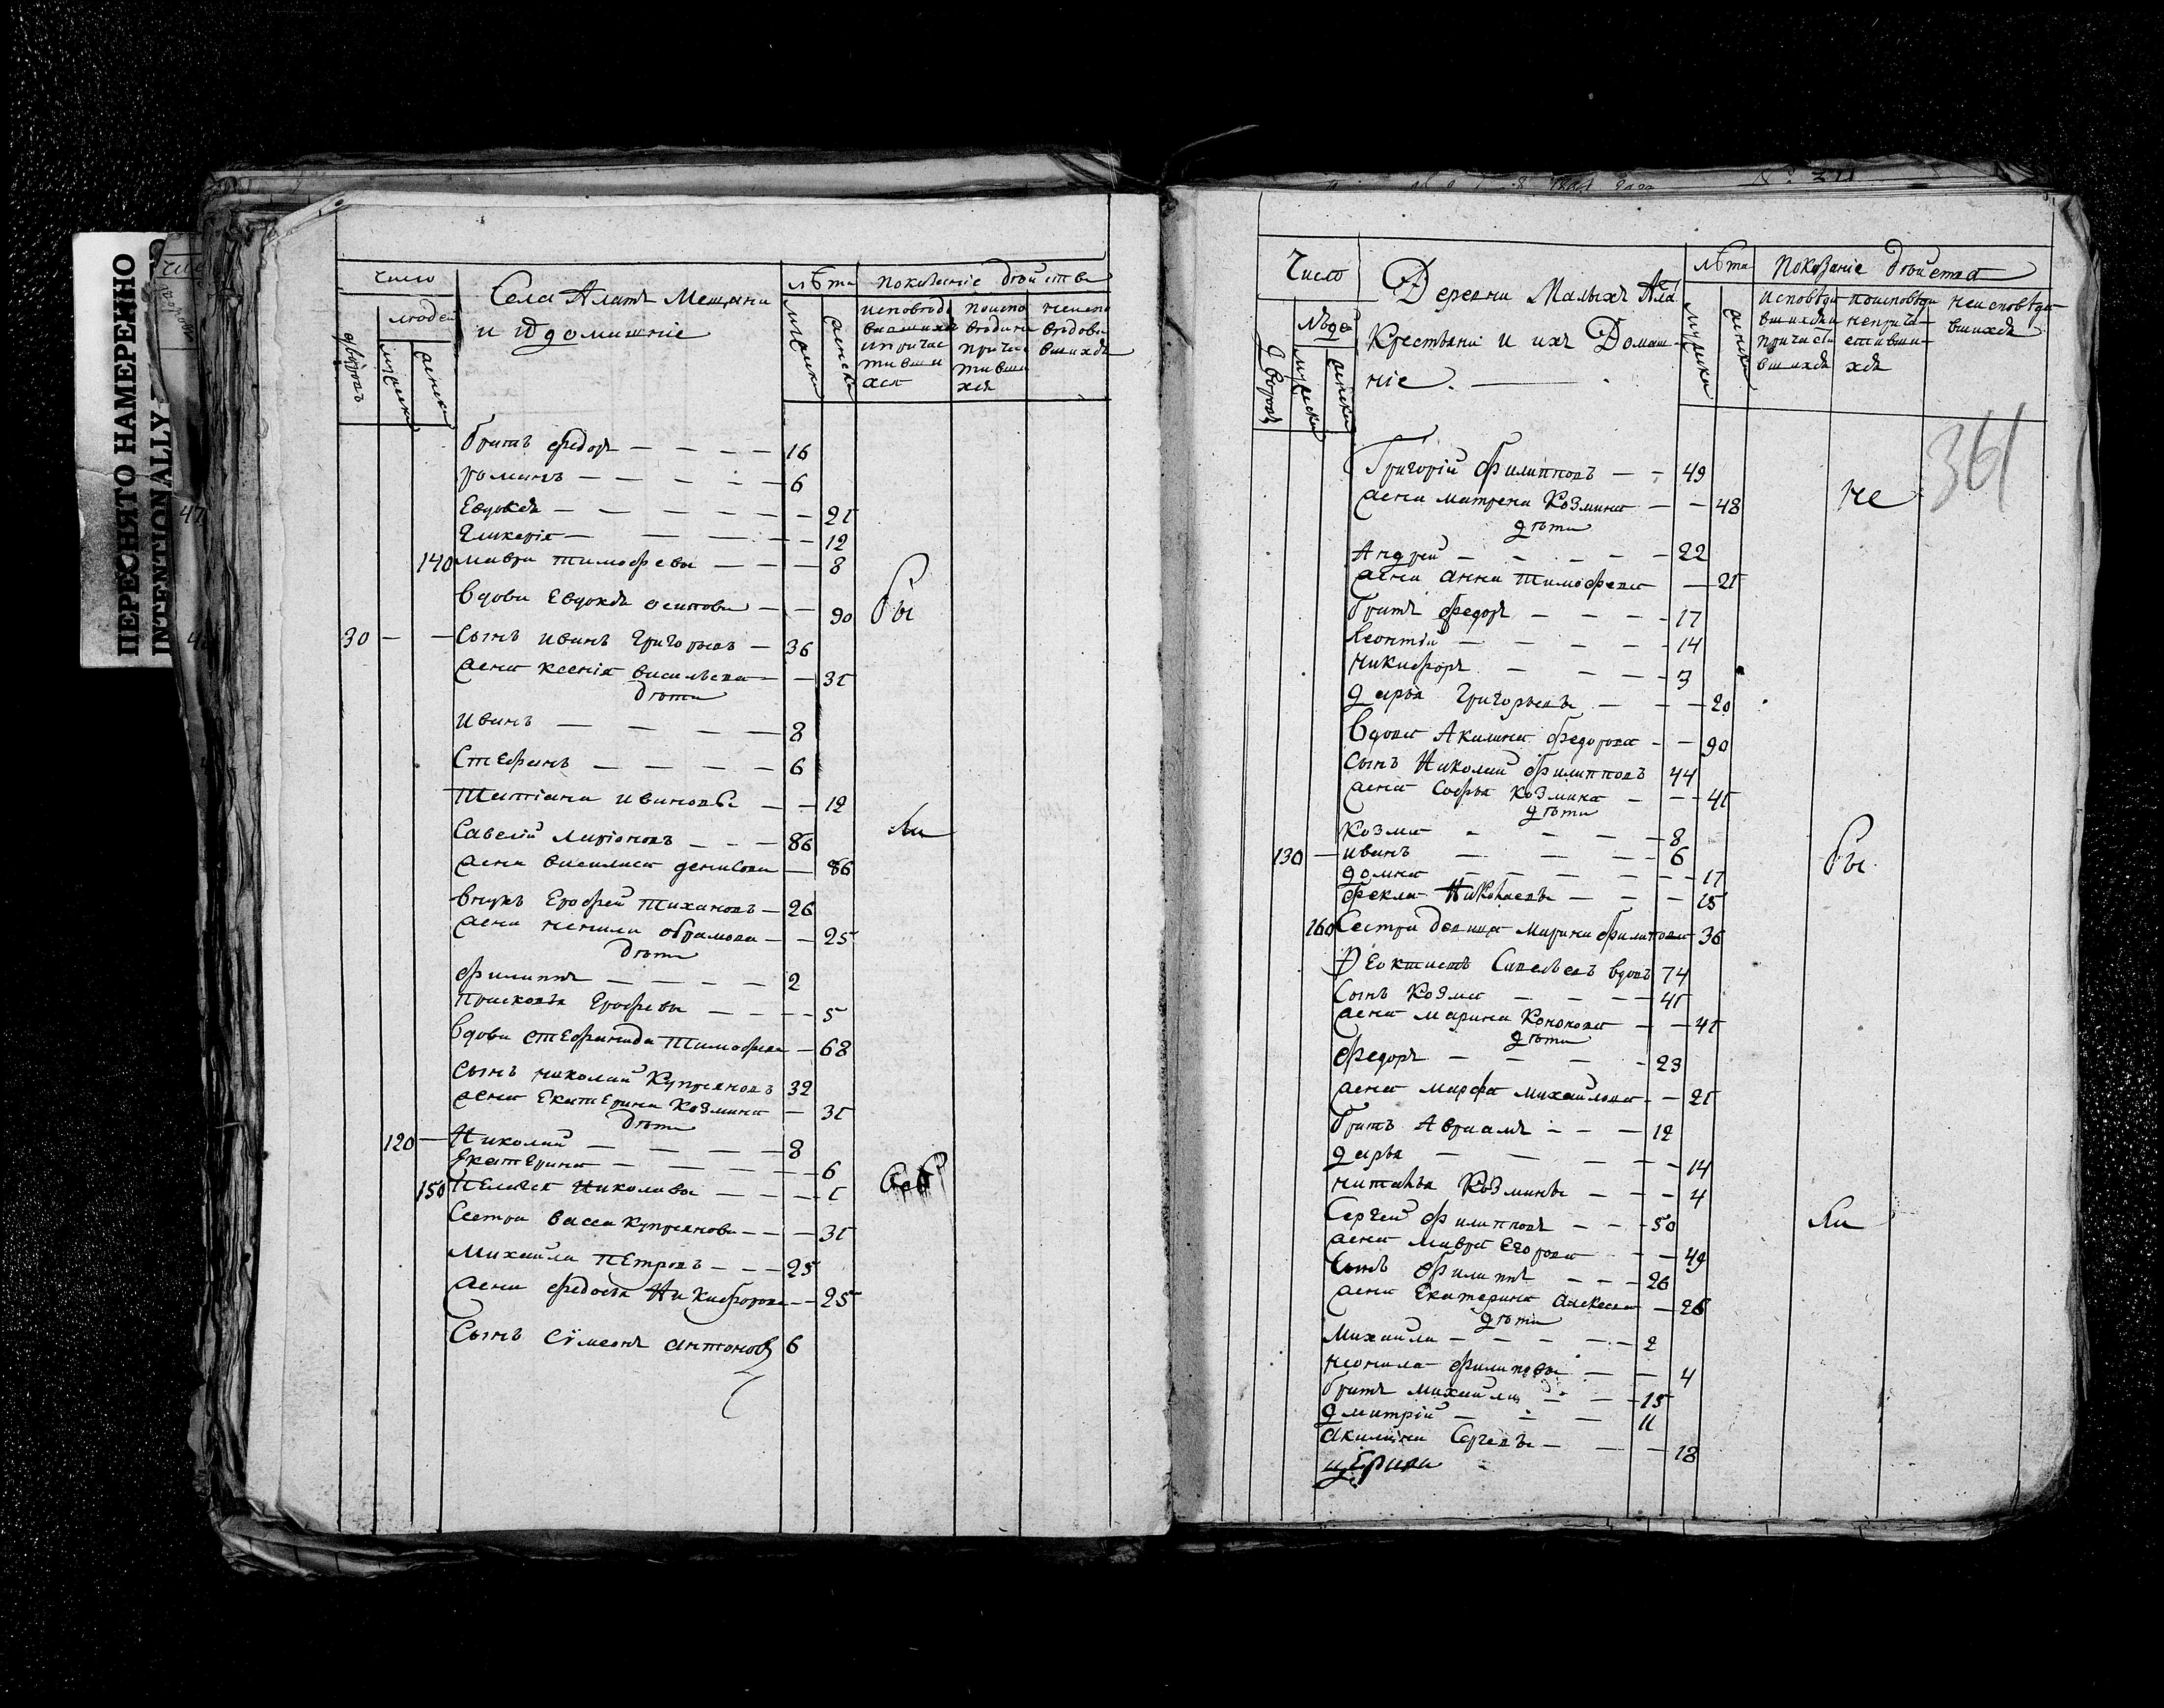 ПЕРЕСНЯТО НАМЕРЕННО
INTENTIONALLY
число
людей
дворовъ
мужеска
женска
Села Алатъ Мещани
и Идомашніе
лѣта
мужеска
женска
показаніе двойства
исповѣдо
вшихся
и причас
тивши
хся
поиспо
вѣдани
причас
тивши
хся
неиспо
вѣдова
вшихся
братъ федоръ — — — — 16
романъ — — — — — 6
Евдокея — — — — — — 21
Гликерія — — — — — 12
140 мавра тимофеевы — — — 8
вдова Евдокея осипова — — 90
бы
30 — — Сынъ иванъ Григорьевъ — 36
жена ксенія васильева — — 31
дѣти
иванъ — — — — 8
Стефанъ — — — — 6
Татіана ивановы — — 12
ли
Савелій Ларіоновъ — — — 86
жена василиса денисова — 86
внукъ Ерофей тихановъ — 26
жена ненила абрамова — — 25
дѣти
филиппъ — — — — — 2
Прасковья Ерофеевы — — — — 5
вдова стефанида Тимофеева — 68
Сынъ николай Купреяновъ 32
жена Екатерина козмина — 31
дѣти
120 — Николай — — — — 8
Екатерина — — — — — 6
150 Пелагея Николавы — — — — 1
Сестра васса купреянова — — — 31
Михаила Петровъ — — — 25
жена федосья Никифорова — — 25
Сынъ сѵмеонъ антоновъ 6
Число
людей
дворовъ
мужеска
женска
Деревни Малыхъ Алат
Крестьяни и ихъ Домаш
ніе.
лѣта
мужеска
женска
Показаніе двойства
исповѣда
вшихся и
причасти
вшихся
поисповѣда
неприча
стивши
хся
неисповѣда
вшихся
361
Григорій филипповъ — — 49
жена матрена козмина — — 48
не
дѣти
Андрей — — — — — 22
жена анна тимофеева — 21
братъ федоръ — — — — 17
Леонтій — — — — — 14
никифоръ — — — — 3
дарья Григорьевы — — — 20
вдова Акилина федорова — — 90
сынъ Николай филипповъ 44
жена софья козмина — — — 41
дѣти
козма — — — — 8
130 — иванъ — — — — 6
домна — — — — — — 17
фекла Николаевы — — — 15
бы
160 Сестра девица марина филипова 36
Феоктистъ Савельевъ вдовъ 74
Сынъ козма — — — — 41
жена марина Кононова — — 41
дѣти
федоръ — — — — 23
жена марфа михайлова — — 21
братъ Авраамъ — — — 12
дарья — — — — — 14
наталья козмины — — — 4
Сергей филипповъ — — — 50
ли
жена мавра Егорова — — — 49
сынъ филиппъ — — — 26
жена Екатерина алексеева — 26
дѣти
михаила — — — — — 2
неонила филиповы — — 4
братъ михаила — — — 15
дмитрій — — — 11
акилина Сергевы — — — 18